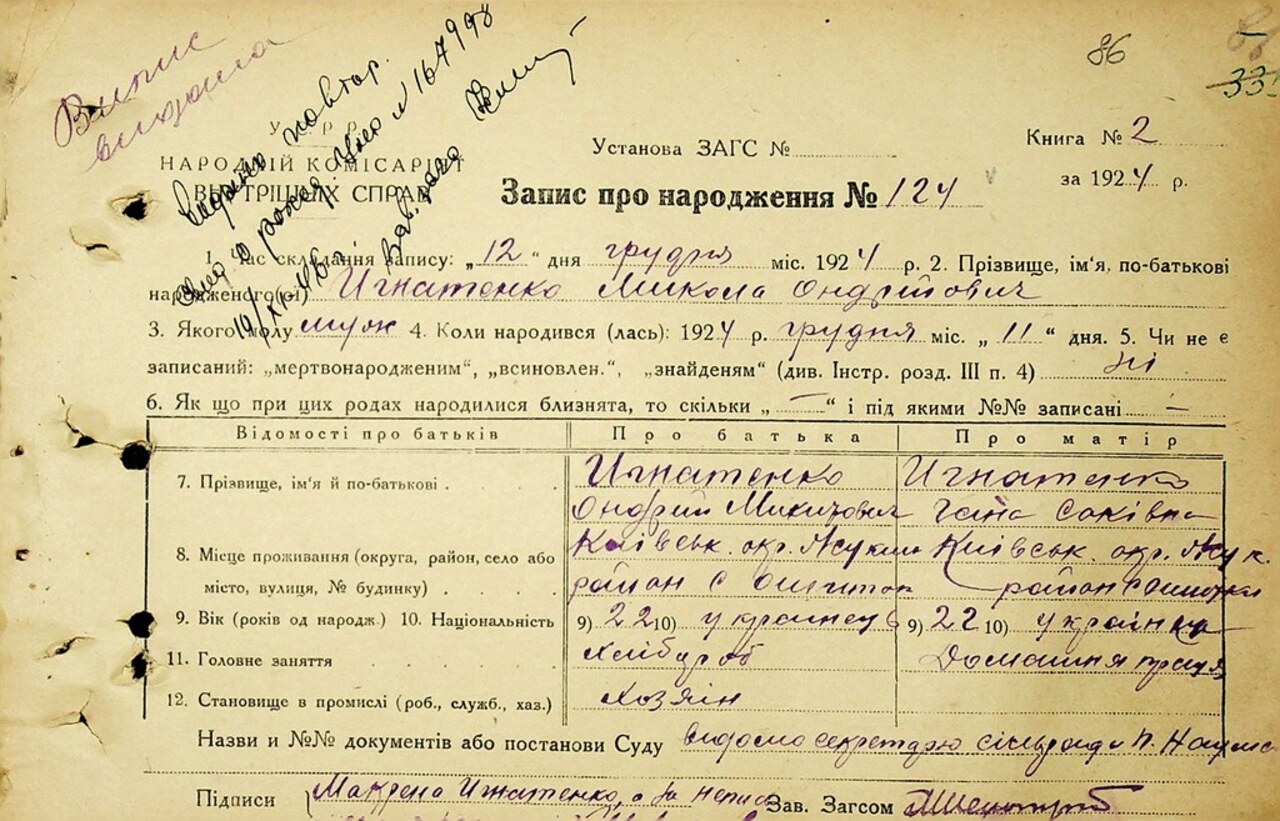 Випис
видана
86
33
У. р р.
НАРОДНІЙ КОМІСАРІЯТ
ВНУТРІШНІХ СПРАВ
видано повтор.
рожд № 167998
19/XI-46
Установа ЗАГС №
Книга № 2
за 1924 р.
Запис про народження № 124
1. Час складання запису: „12“ дня грудня міс. 1924 р. 2. Прізвище, ім'я, по-батькові
народженого(ої) Игнатенко Микола Ондрійович
3. Якого полу муж 4. Коли народився (лась): 1924 р. грудня міс. „11“ дня. 5. Чи не є
записаний: „мертвонародженим“, „всиновлен.“, „знайденям“ (див. Інстр. розд. III п. 4) ні
6. Як що при цих родах народилися близнята, то скільки „—“ і під якими №№ записані —
Відомості про батьків Про батька Про матір
7. Прізвище, ім'я й по-батькові Игнатенко Игнатенко
Ондрій Микитович Гана Саківна
8. Місце проживання (округа, район, село або Київськ. окр. Київськ. окр.
місто, вулиця, № будинку) район с район с
9. Вік (років од народж.) 10. Національність 9) 22 10) українець 9) 22 10) українка
11. Головне заняття хлібороб Домашня праця
12. Становище в промислі (роб., служб., хаз.) хозяін
Назви и №№ документів або постанови Суду видомо секретарю сільради П.
Підписи Макрена Игнатенко, а за непис Зав. Загсом